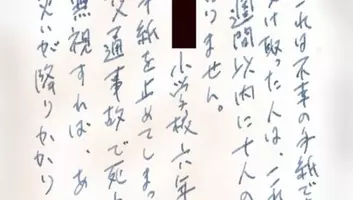 これは不幸の手紙で
け取った人は、
週間以内に十人の
りません。
小学校六年
手紙を止めてしまっ
交通事故で死
無視すれば、あ
災いが降りかかり